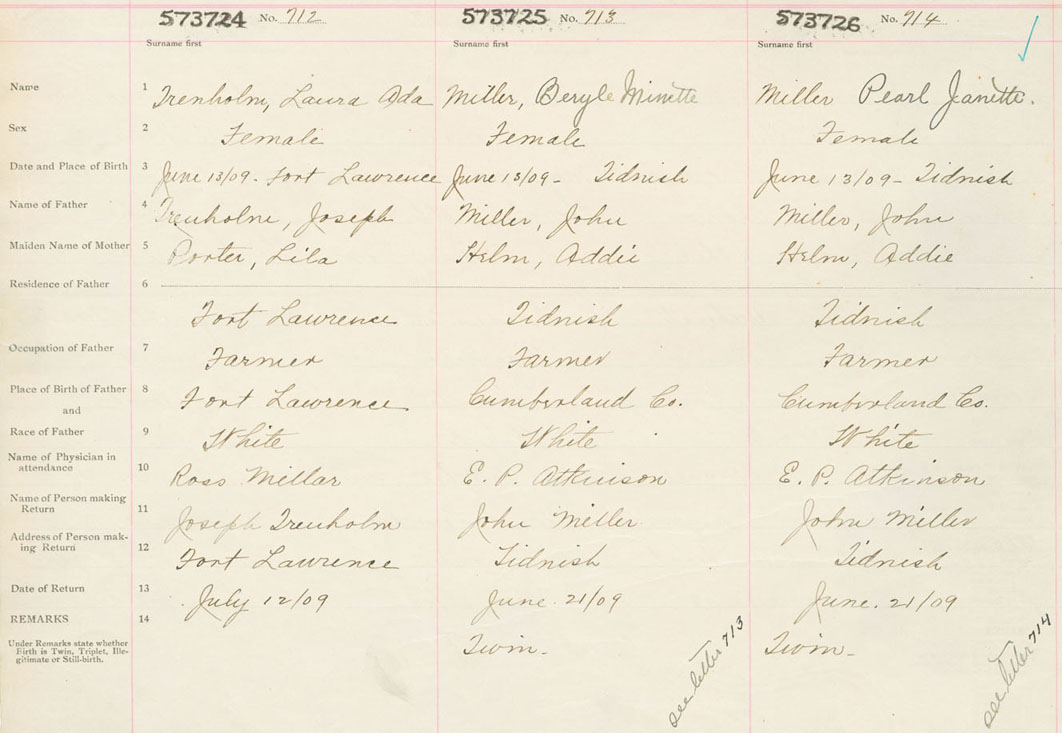 573724 No. 712 573725 No. 713 573726 No. 714
Surname first Surname first Surname first
Name 1 Trenholm, Laura Ada Miller, Beryle Minette Miller Pearl Janette.
Sex 2 Female Female Female
Date and Place of Birth 3 June 13/09 - Fort Lawrence June 13/09 - Tidnish June 13/09 - Tidnish
Name of Father 4 Trenholm, Joseph Miller, John Miller, John
Maiden Name of Mother 5 Porter, Lila Helm, Addie Helm, Addie
Residence of Father 6
Fort Lawrence Tidnish Tidnish
Occupation of Father 7 Farmer Farmer Farmer
Place of Birth of Father 8 Fort Lawrence Cumberland Co. Cumberland Co.
and
Race of Father 9 White White White
Name of Physician in
attendance 10 Ross Millar E. P. Atkinson E. P. Atkinson
Name of Person making
Return 11 Joseph Trenholm John Miller John Miller
Address of Person mak-
ing Return 12 Fort Lawrence Tidnish Tidnish
Date of Return 13 July 12/09 June. 21/09 June. 21/09
REMARKS 14
Under Remarks state whether
Birth is Twin, Triplet, Ille-
gitimate or Still-birth.
Twin - Twin -
see letter 713 see letter 714